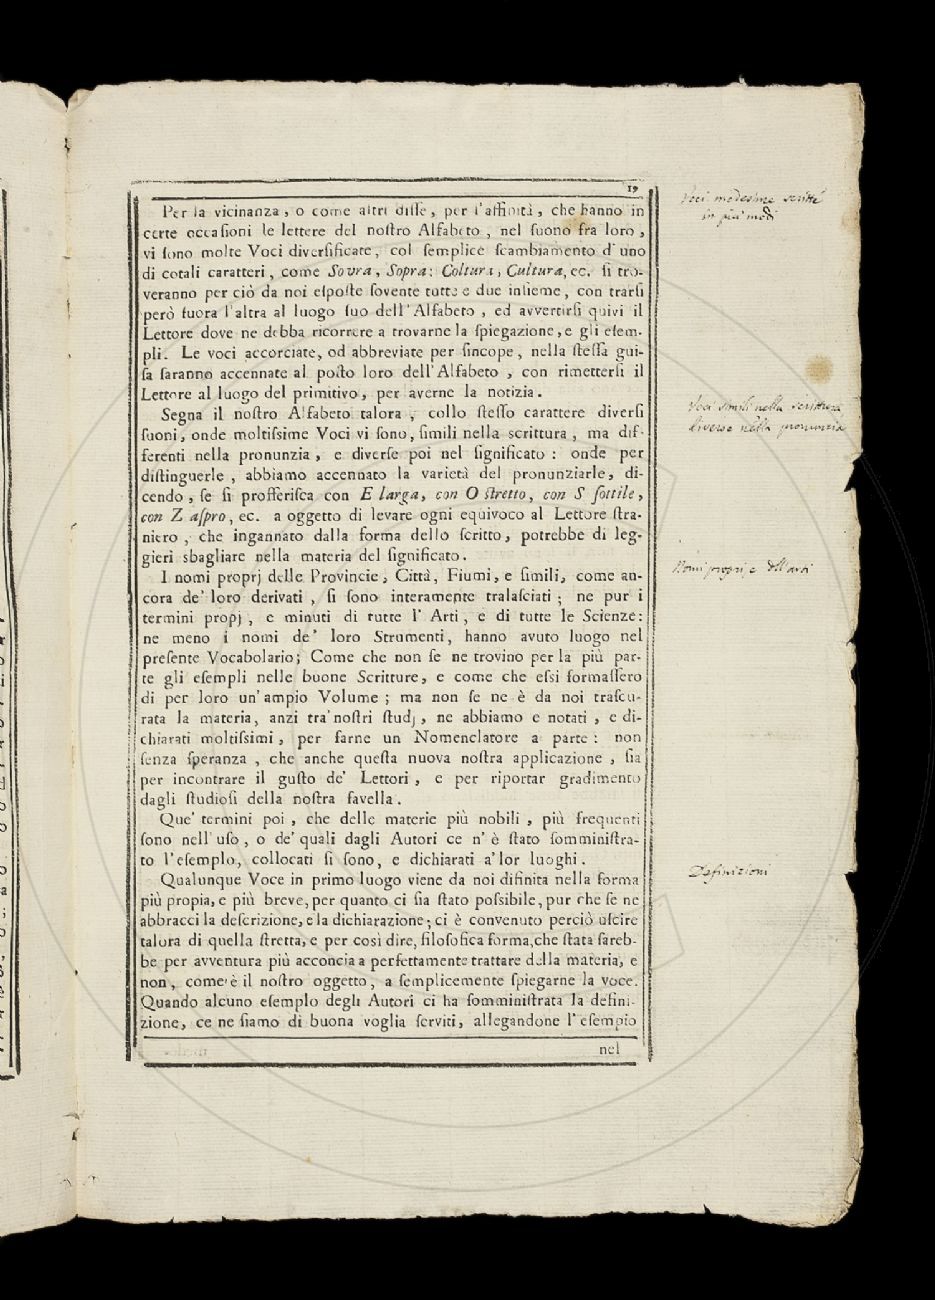 19
Per la vicinanza, o come altri disse, per l'affinità, che hanno in
certe occasioni le lettere del nostro Alfabeto, nel suono fra loro,
vi sono molte Voci diversificate, col semplice scambiamento d'uno
di cotali caratteri, come Sovra, Sopra: Coltura, Cultura, ec. si tro-
veranno per ciò da noi esposte sovente tutte e due insieme, con trarsi
però fuora l'altra al luogo suo dell'Alfabeto, ed avvertirsi quivi il
Lettore dove ne debba ricorrere a trovarne la spiegazione, e gli esem-
pli. Le voci accorciate, od abbreviate per sincope, nella stessa gui-
sa saranno accennate al posto loro dell'Alfabeto, con rimettersi il
Lettore al luogo del primitivo, per averne la notizia.
Segna il nostro Alfabeto talora, collo stesso carattere diversi
suoni, onde moltissime Voci vi sono, simili nella scrittura, ma dif-
ferenti nella pronunzia, e diverse poi nel significato: onde per
distinguerle, abbiamo accennato la varietà del pronunziarle, di-
cendo, se si profferisca con E larga, con O stretto, con S sottile,
con Z aspro, ec. a oggetto di levare ogni equivoco al Lettore stra-
niero, che ingannato dalla forma dello scritto, potrebbe di leg-
gieri sbagliare nella materia del significato.
I nomi proprj delle Provincie, Città, Fiumi, e simili, come an-
cora de' loro derivati, si sono interamente tralasciati; ne pur i
termini propj, e minuti di tutte l'Arti, e di tutte le Scienze:
ne meno i nomi de' loro Strumenti, hanno avuto luogo nel
presente Vocabolario; Come che non se ne trovino per la più par-
te gli esempli nelle buone Scritture, e come che essi formassero
di per loro un'ampio Volume; ma non se ne è da noi trascu-
rata la materia, anzi tra'nostri studj, ne abbiamo e notati, e di-
chiarati moltissimi, per farne un Nomenclatore a parte: non
senza speranza, che anche questa nuova nostra applicazione, sia
per incontrare il gusto de' Lettori, e per riportar gradimento
dagli studiosi della nostra favella.
Que' termini poi, che delle materie più nobili, più frequenti
sono nell'uso, o de' quali dagli Autori ce n'è stato somministra-
to l'esemplo, collocati si sono, e dichiarati a'lor luoghi.
Qualunque Voce in primo luogo viene da noi difinita nella forma
più propia, e più breve, per quanto ci sia stato possibile, pur che se ne
abbracci la descrizione, e la dichiarazione; ci è convenuto perciò uscire
talora di quella stretta, e per così dire, filosofica forma, che stata sareb-
be per avventura più acconcia a perfettamente trattare della materia, e
non, come è il nostro oggetto, a semplicemente spiegarne la voce.
Quando alcuno esemplo degli Autori ci ha somministrata la defini-
zione, ce ne siamo di buona voglia serviti, allegandone l'esempio
nel
Voci medesime scritte
in più modi
Voci simili nella scrittura,
diverse nella pronunzia
Nomi propri e dell'arti
Definizioni